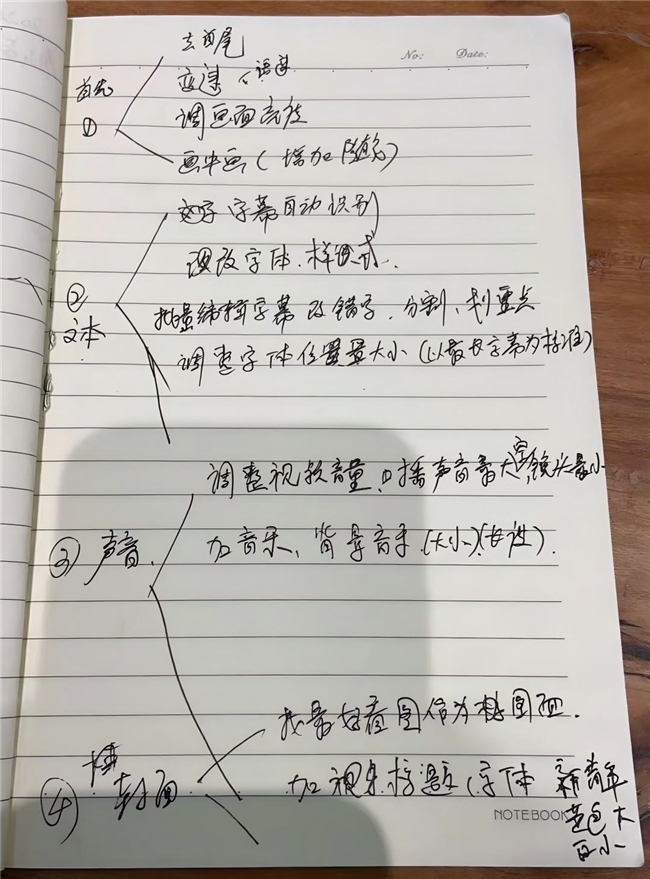 No: Date:
去首尾
首先
变速 语速
①
调画面亮度
画中画(增加随镜)
文字 字幕自动识别
调改字体.样式.
②
文本
批量编辑字幕 改错字.分割、划重点
调整字体位置大小(以最长字幕为标准)
调整视频音量 口播声音最大 空镜头最小
③ 声音.
加音乐、背景音乐(大小)
找最好看图作为封面.
④ 封面
加视频标题(字体 新青年
黄色大
白小
NOTEBOOK